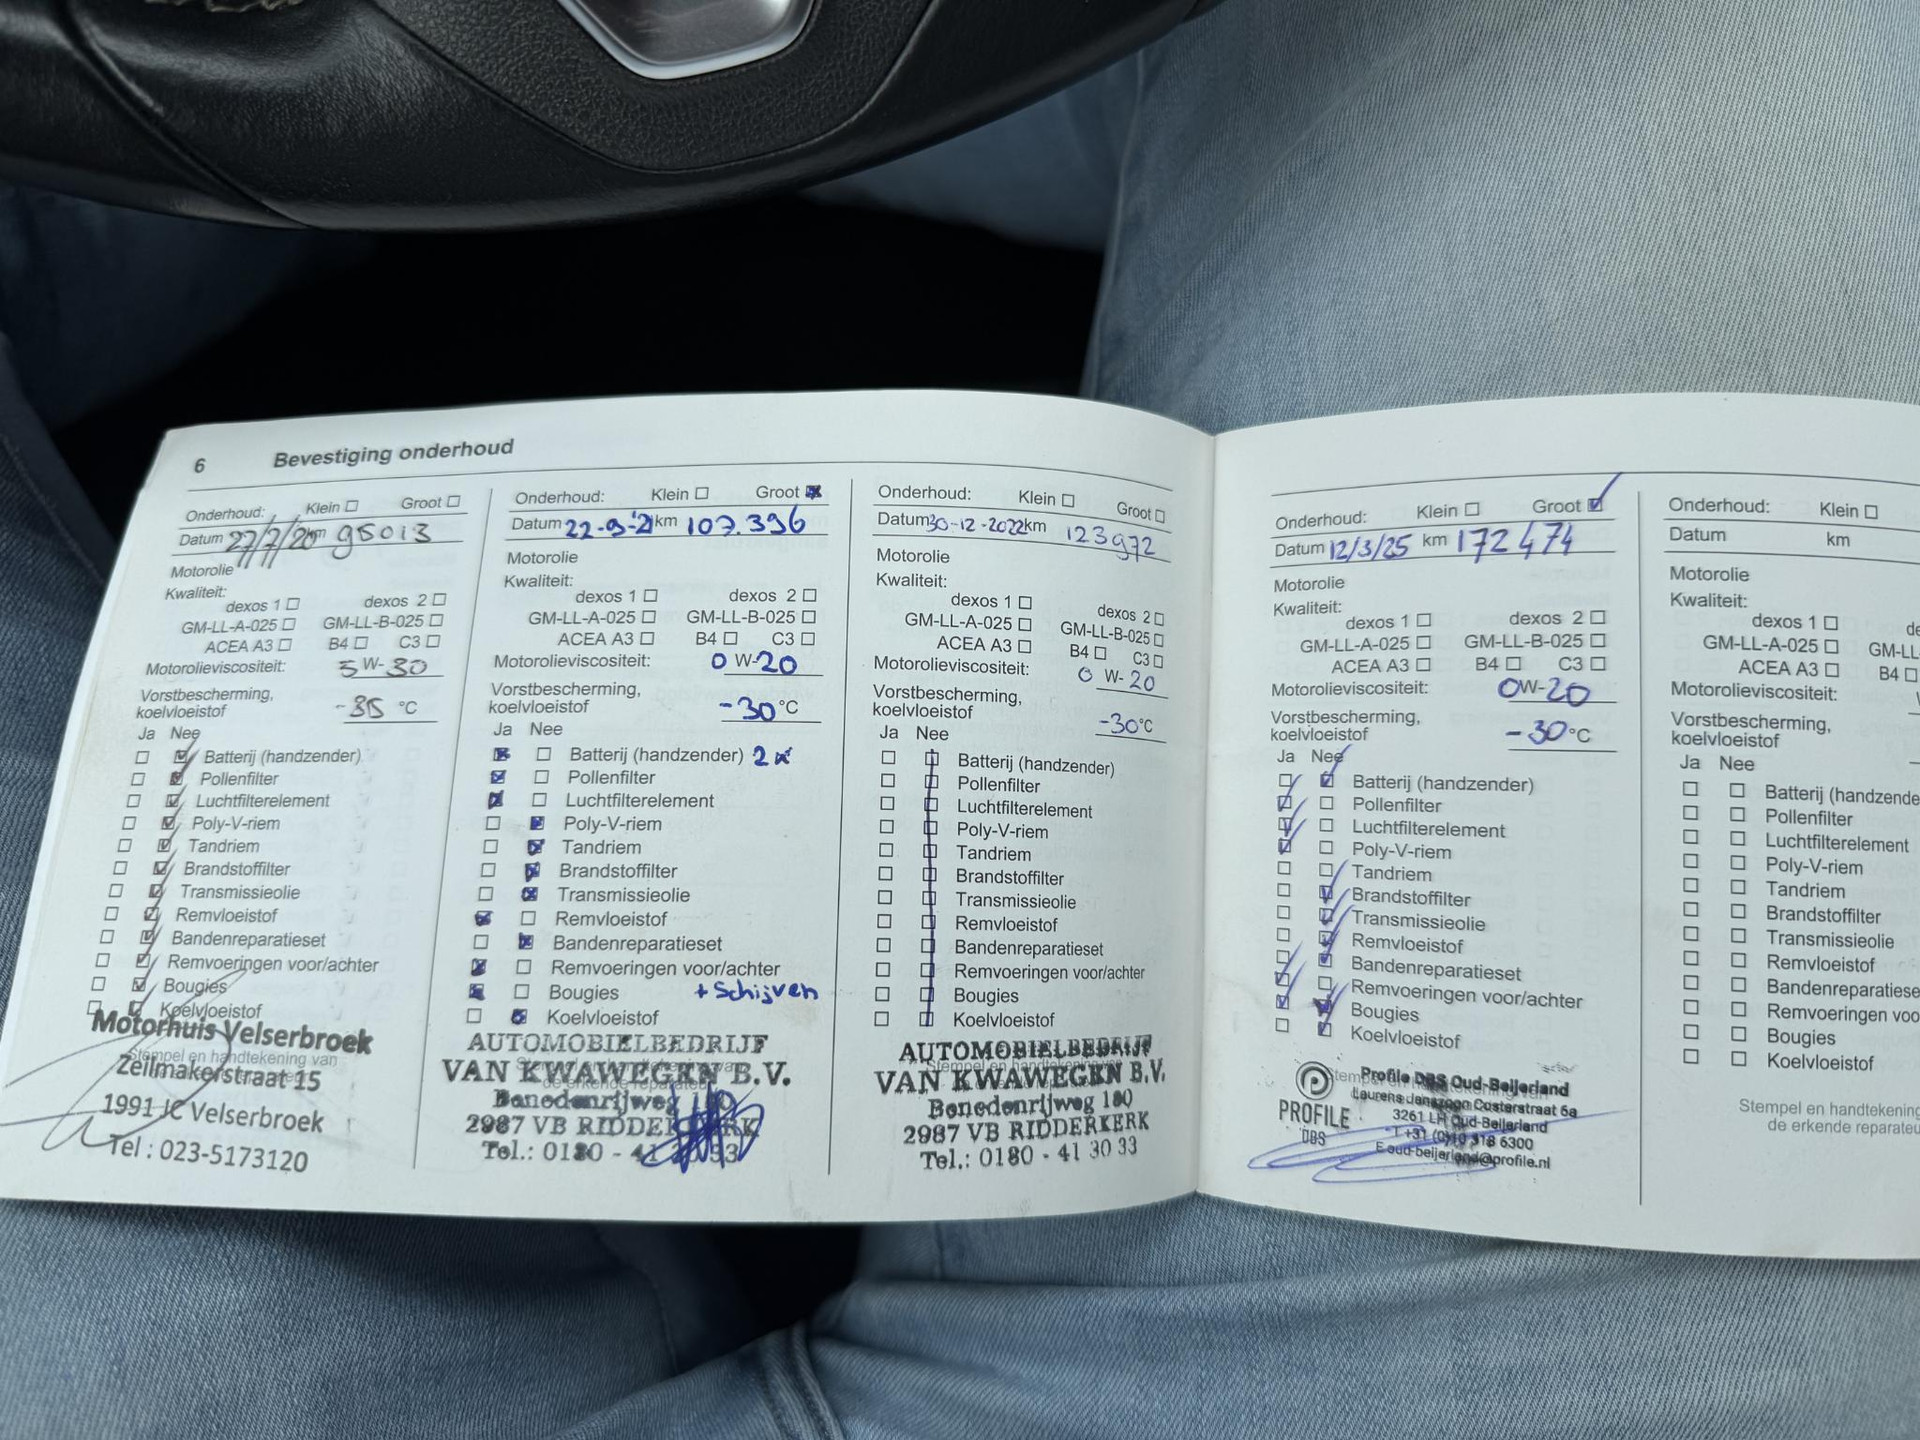 6 Bevestiging onderhoud
Onderhoud: Klein Groot
Datum 27/7/20 km 95013
Motorolie
Kwaliteit:
dexos 1 dexos 2
GM-LL-A-025 GM-LL-B-025
ACEA A3 B4 C3
Motorolieviscositeit: 5 W-30
Vorstbescherming,
koelvloeistof -35 °C
Ja Nee
Batterij (handzender)
Pollenfilter
Luchtfilterelement
Poly-V-riem
Tandriem
Brandstoffilter
Transmissieolie
Remvloeistof
Bandenreparatieset
Remvoeringen voor/achter
Bougies
Koelvloeistof
Motorhuis Velserbroek
Stempel en handtekening van
Zeilmakerstraat 15
1991 JC Velserbroek
Tel : 023-5173120
Onderhoud: Klein Groot
Datum 22-9-'21 km 107.396
Motorolie
Kwaliteit:
dexos 1 dexos 2
GM-LL-A-025 GM-LL-B-025
ACEA A3 B4 C3
Motorolieviscositeit: 0 W-20
Vorstbescherming,
koelvloeistof -30 °C
Ja Nee
Batterij (handzender) 2x
Pollenfilter
Luchtfilterelement
Poly-V-riem
Tandriem
Brandstoffilter
Transmissieolie
Remvloeistof
Bandenreparatieset
Remvoeringen voor/achter
Bougies + Schijven
Koelvloeistof
AUTOMOBIELBEDRIJF
VAN KWAWEGEN B.V.
Benedenrijweg 180
2987 VB RIDDERKERK
Tel.: 0180 - 41 30 33
Onderhoud: Klein Groot
Datum 30-12-2022 km 123972
Motorolie
Kwaliteit:
dexos 1 dexos 2
GM-LL-A-025 GM-LL-B-025
ACEA A3 B4 C3
Motorolieviscositeit: 0 W-20
Vorstbescherming,
koelvloeistof -30 °C
Ja Nee
Batterij (handzender)
Pollenfilter
Luchtfilterelement
Poly-V-riem
Tandriem
Brandstoffilter
Transmissieolie
Remvloeistof
Bandenreparatieset
Remvoeringen voor/achter
Bougies
Koelvloeistof
AUTOMOBIELBEDRIJF
VAN KWAWEGEN B.V.
Benedenrijweg 180
2987 VB RIDDERKERK
Tel.: 0180 - 41 30 33
Onderhoud: Klein Groot
Datum 12/3/25 km 172474
Motorolie
Kwaliteit:
dexos 1 dexos 2
GM-LL-A-025 GM-LL-B-025
ACEA A3 B4 C3
Motorolieviscositeit: 0W-20
Vorstbescherming,
koelvloeistof -30 °C
Ja Nee
Batterij (handzender)
Pollenfilter
Luchtfilterelement
Poly-V-riem
Tandriem
Brandstoffilter
Transmissieolie
Remvloeistof
Bandenreparatieset
Remvoeringen voor/achter
Bougies
Koelvloeistof
PROFILE
DBS
Profile DBS Oud-Beijerland
Laurens Janszoon Costerstraat 6a
3261 LH Oud-Beijerland
T +31 (0)10 318 6300
E oud-beijerland@profile.nl
Onderhoud: Klein
Datum km
Motorolie
Kwaliteit:
dexos 1 de
GM-LL-A-025 GM-LL
ACEA A3 B4
Motorolieviscositeit:
Vorstbescherming,
koelvloeistof
Ja Nee
Batterij (handzende
Pollenfilter
Luchtfilterelement
Poly-V-riem
Tandriem
Brandstoffilter
Transmissieolie
Remvloeistof
Bandenreparatiese
Remvoeringen voo
Bougies
Koelvloeistof
Stempel en handtekening
de erkende reparateu